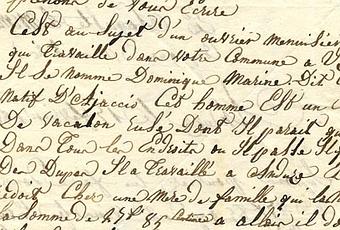 de Vous Ecrire
C'est au Sujet d'un ouvrier menuisier
qui Travaille dans votre Commune a V
Il Se nomme Dominique Marine. Dit
Natif D'Ajaccio Cet homme Est un
De vacabon Dont Il parait qu
Dans Tous les Endroits ou Il passe Il
Des Dupes Il a Travaillé a Anduze
Chez une Mere de famille qui la
a Somme de 85 a allais il do